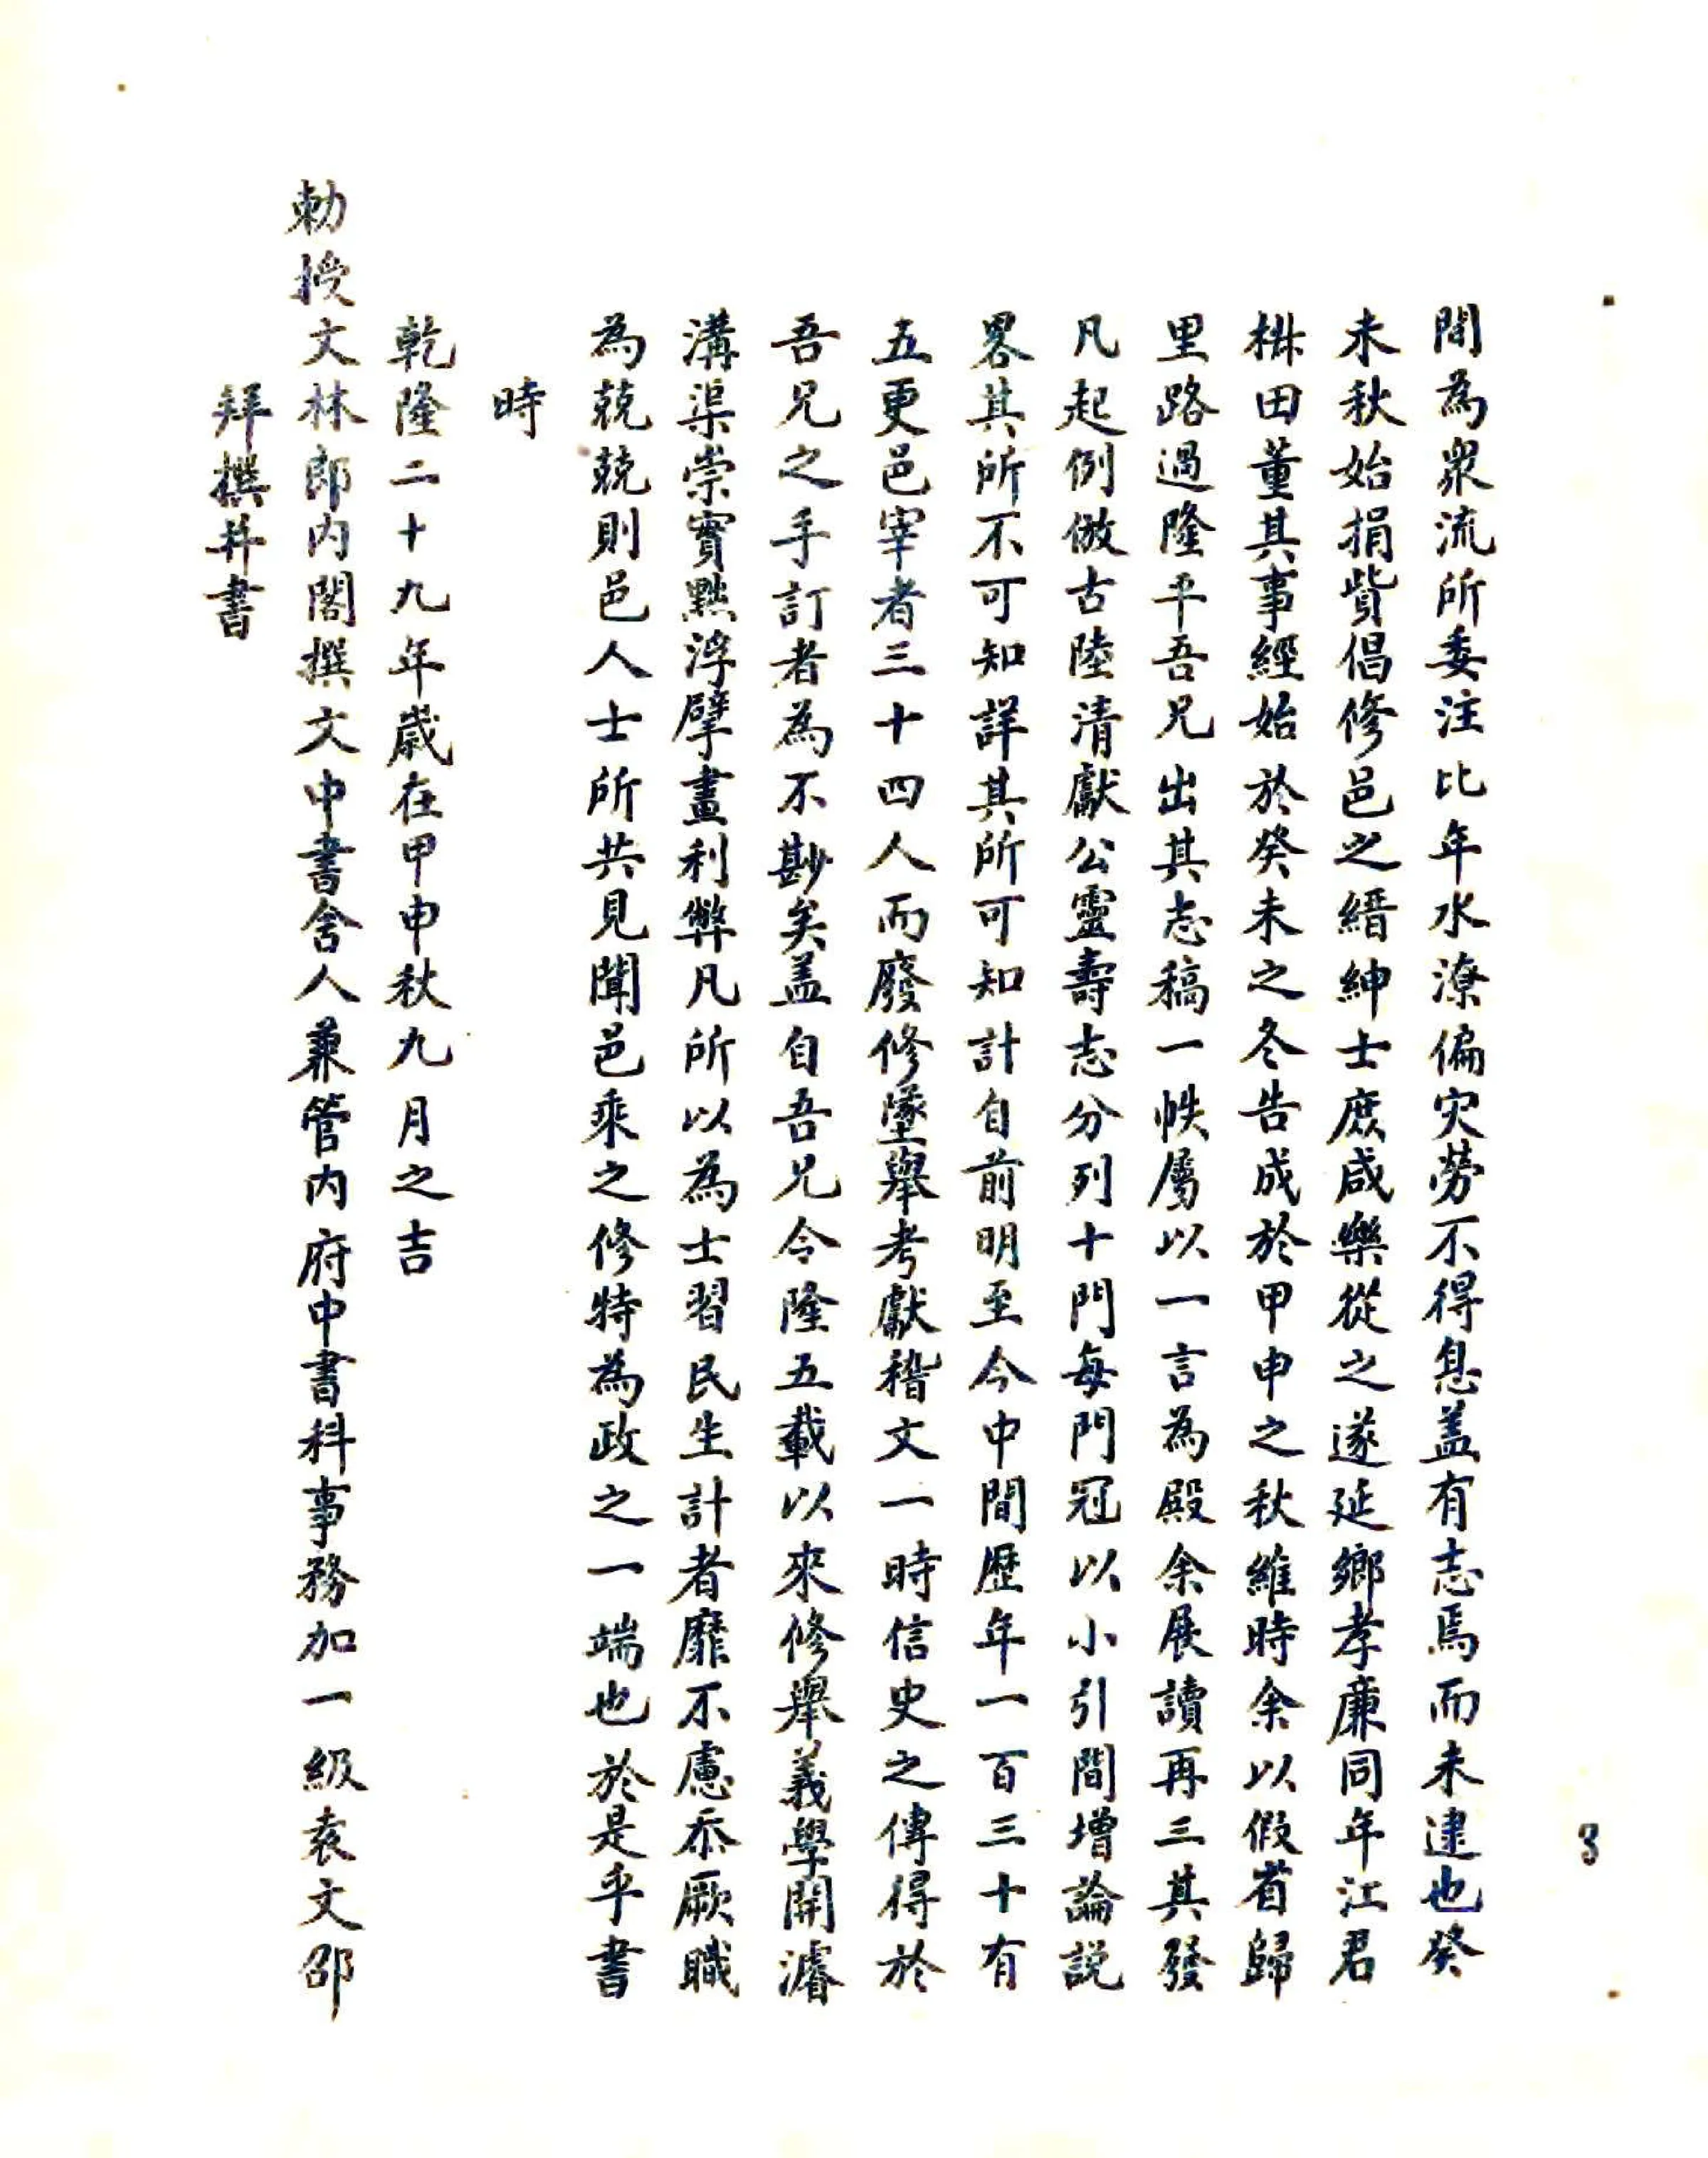 間為眾流所委注比年水潦偏灾勞不得息盖有志焉而未逮也癸
未秋始捐貲倡修邑之縉紳士庶咸樂從之遂延鄉孝廉同年江君
楙田董其事經始於癸未之冬告成於甲申之秋維時余以假省歸
里路過隆平吾兄出其志稿一帙屬以一言為殿余展讀再三其發
凡起例倣古陸清獻公靈壽志分列十門每門冠以小引間增論説
畧其所不可知詳其所可知計自前明至今中間歷年一百三十有
五更邑宰者三十四人而廢修墜舉考獻稽文一時信史之傳得於
吾兄之手訂者為不尠矣盖自吾兄令隆五載以來修舉義學開濬
溝渠崇實黜浮擘畫利弊凡所以為士習民生計者靡不慮忝厥職
為兢兢則邑人士所共見聞邑乘之修特為政之一端也於是乎書
時
乾隆二十九年歲在甲申秋九月之吉
勅授文林郎内閣撰文中書舍人兼管内府中書科事務加一級袁文邵
拜撰并書
3